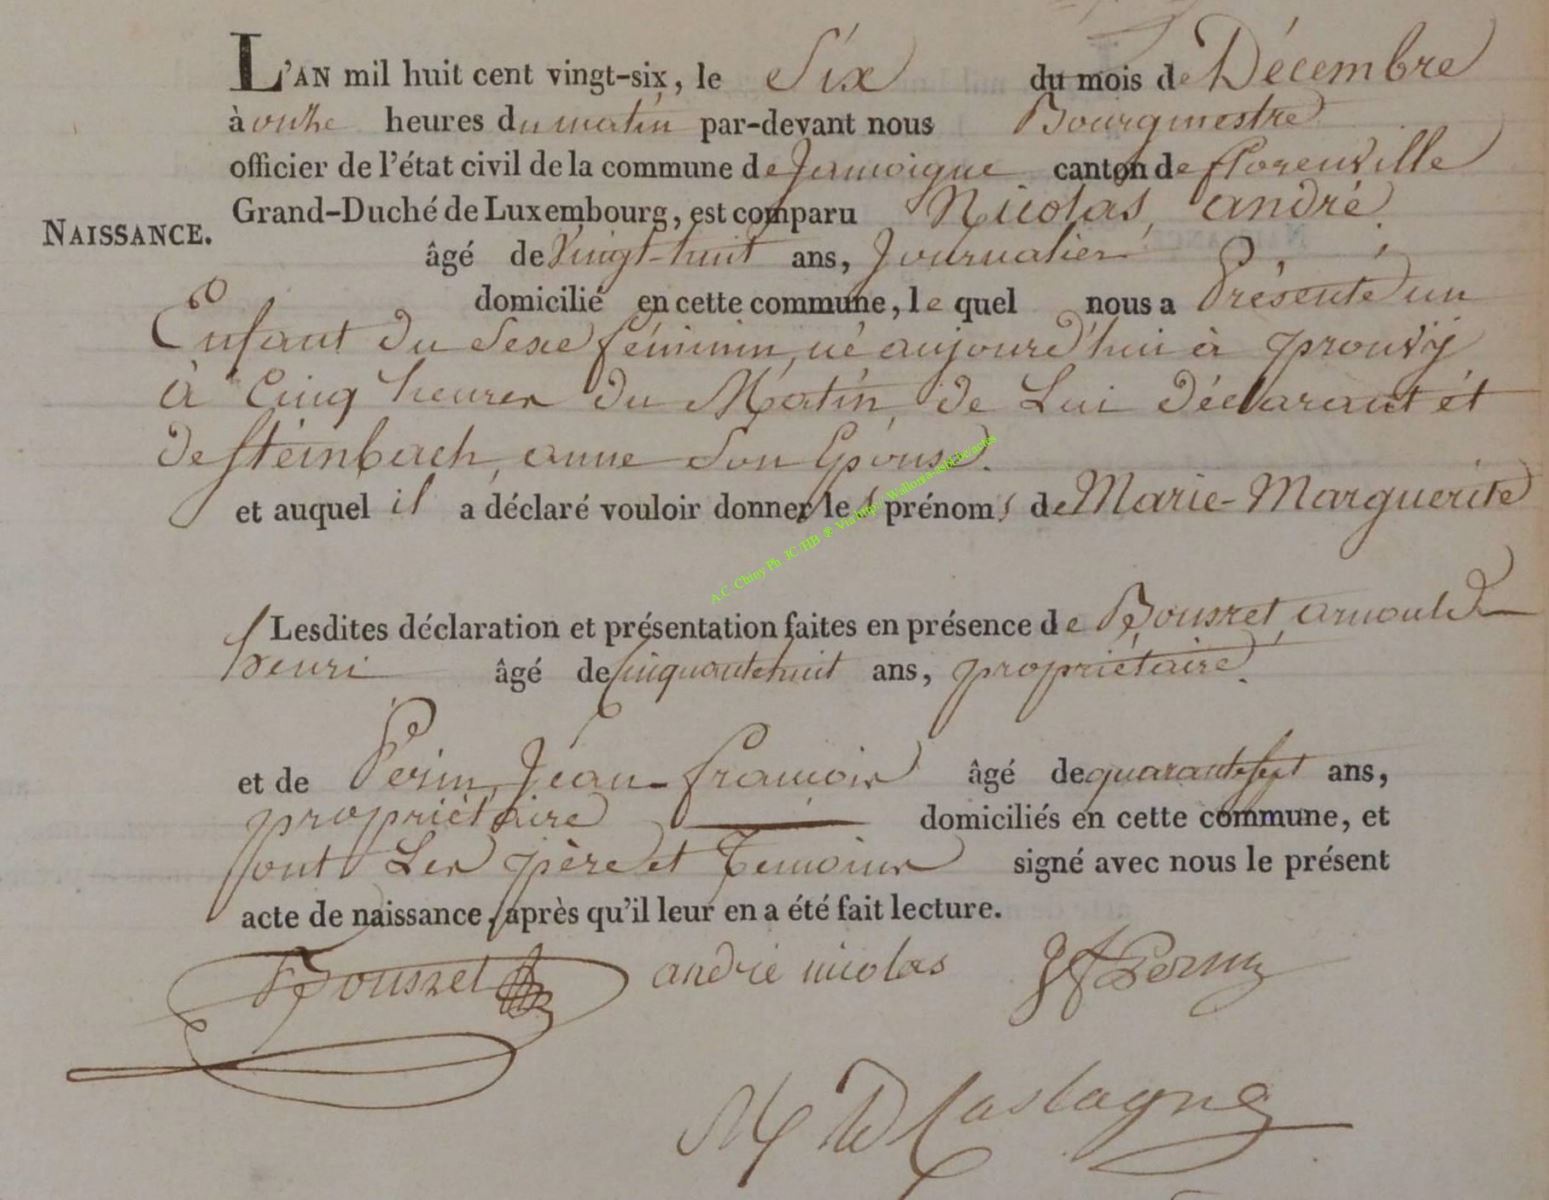 L'AN mil huit cent vingt-six, le Six du mois de Décembre
à onze heures du matin par-devant nous Bourgmestre
officier de l'état civil de la commune de Jamoigne canton de florenville
NAISSANCE. Grand-Duché de Luxembourg, est comparu Nicolas, andré
âgé de Vingt-huit ans, Journalier
domicilié en cette commune, le quel nous a Présenté un
Enfant du Sexe féminin, né aujourd'hui à prouvÿ
à Cinq heures du Matin, de Lui déclarant et
de Steinbach, anne Son Epouse.
et auquel il a déclaré vouloir donner les prénoms de Marie-Marguerite
A.C. Chiny Ph. JC HB ® Via http://Wallonia-asbl.be/actes
Lesdites déclaration et présentation faites en présence de Bousret, arnould
henri âgé de Cinquantehuit ans, propriétaire.
et de Perin, Jean-francois âgé de quarantesept ans,
propriétaire domiciliés en cette commune, et
ont Les père et Temoins signé avec nous le présent
acte de naissance, après qu'il leur en a été fait lecture.
Bousret andrie nicolas JfPerin